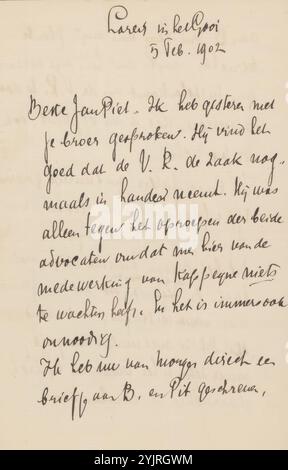 Laren in het Gooi
5 Feb. 1902
Beste Jan Piet. Ik heb gisteren met
je broer gesproken. Hij vind het
goed dat de V. R. de zaak nog-
maals in handen neemt. Hij was
alleen tegen het oproepen der beide
advocaten omdat men hier van de
medewerking van Kappeyne niets
te wachten heeft. En het is immers ook
onnoodig.
Ik heb nu van morgen direct een
briefje aan B. en Pit geschreven,
alamy
Image ID: 2YJRGWM
www.alamy.com